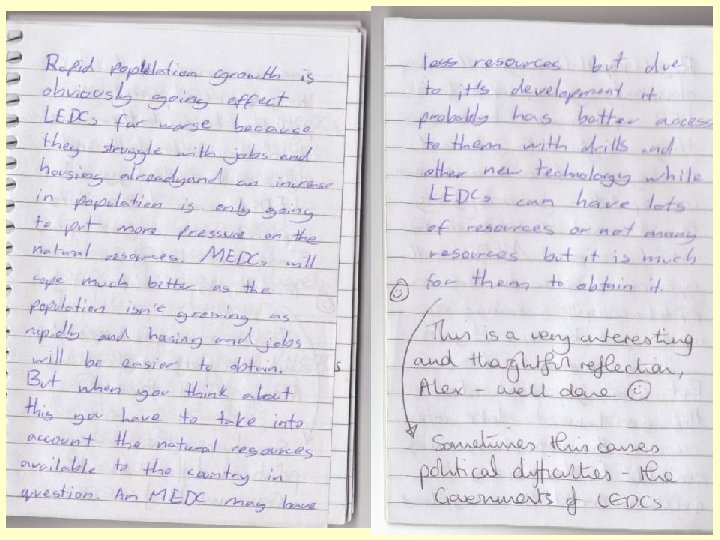 Rapid population growth is
obviously going affect
LEDCs far worse because
they struggle with jobs and
housing already and an increase
in population is only going
to put more pressure on the
natural resources. MEDCs will
cope much better as the
population isn't growing as
rapidly and housing and jobs
will be easier to obtain.
But when you think about
this you have to take into
account the natural resources
available to the country in
question. An MEDC may have
less resources but due
to it's development it
probably has better access
to them with drills and
other new technology while
LEDCs can have lots
of resources or not many
resources but it is much
for them to obtain it.
This is a very interesting
and thoughtful reflection,
Alex - well done
Sometimes this causes
political difficulties - the
Governments of LEDCs